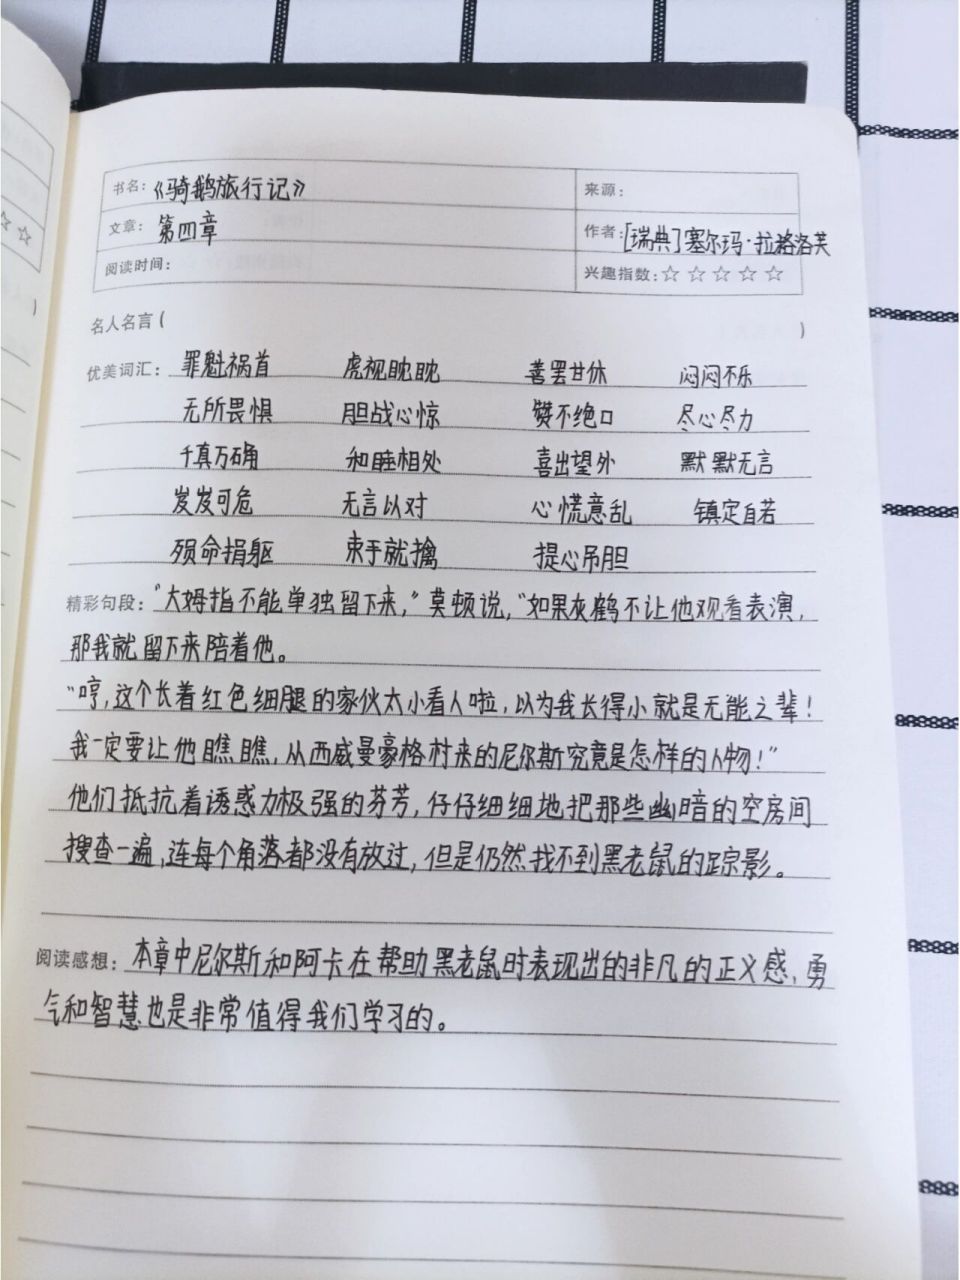 书名：《骑鹅旅行记》 来源：
文章：第四章 作者：[瑞典]塞尔玛·拉格洛芙
阅读时间： 兴趣指数：☆☆☆☆☆
名人名言（ ）
优美词汇：罪魁祸首 虎视眈眈 善罢甘休 闷闷不乐
无所畏惧 胆战心惊 赞不绝口 尽心尽力
千真万确 和睦相处 喜出望外 默默无言
岌岌可危 无言以对 心慌意乱 镇定自若
殒命捐躯 束手就擒 提心吊胆
精彩句段："大姆指不能单独留下来，"莫顿说，"如果灰鹤不让他观看表演，
那我就留下来陪着他。
"哼，这个长着红色细腿的家伙太小看人啦，以为我长得小就是无能之辈！
我一定要让他瞧瞧，从西威曼豪格村来的尼尔斯究竟是怎样的人物！"
他们抵抗着诱惑力极强的芬芳，仔仔细细地把那些幽暗的空房间
搜查一遍，连每个角落都没有放过，但是仍然找不到黑老鼠的踪影。
阅读感想：本章中尼尔斯和阿卡在帮助黑老鼠时表现出的非凡的正义感，勇
气和智慧也是非常值得我们学习的。